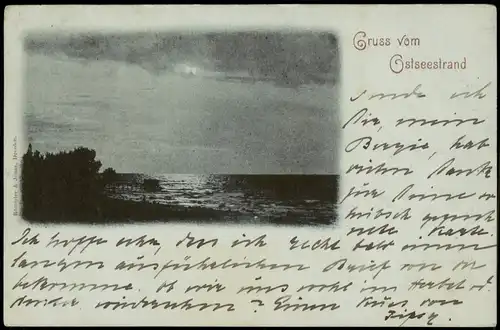 Gruss vom
Ostseestrand
sende ich
Dir, mein
hab
vielen Dank
für Deine
hübsch
Karte.
Ich hoffe sehr, dass ich recht bald einen
langen ausführlichen Brief von Dir
bekomme. Ob wir uns wohl im Herbst
wiedersehen? Einen Kuss von